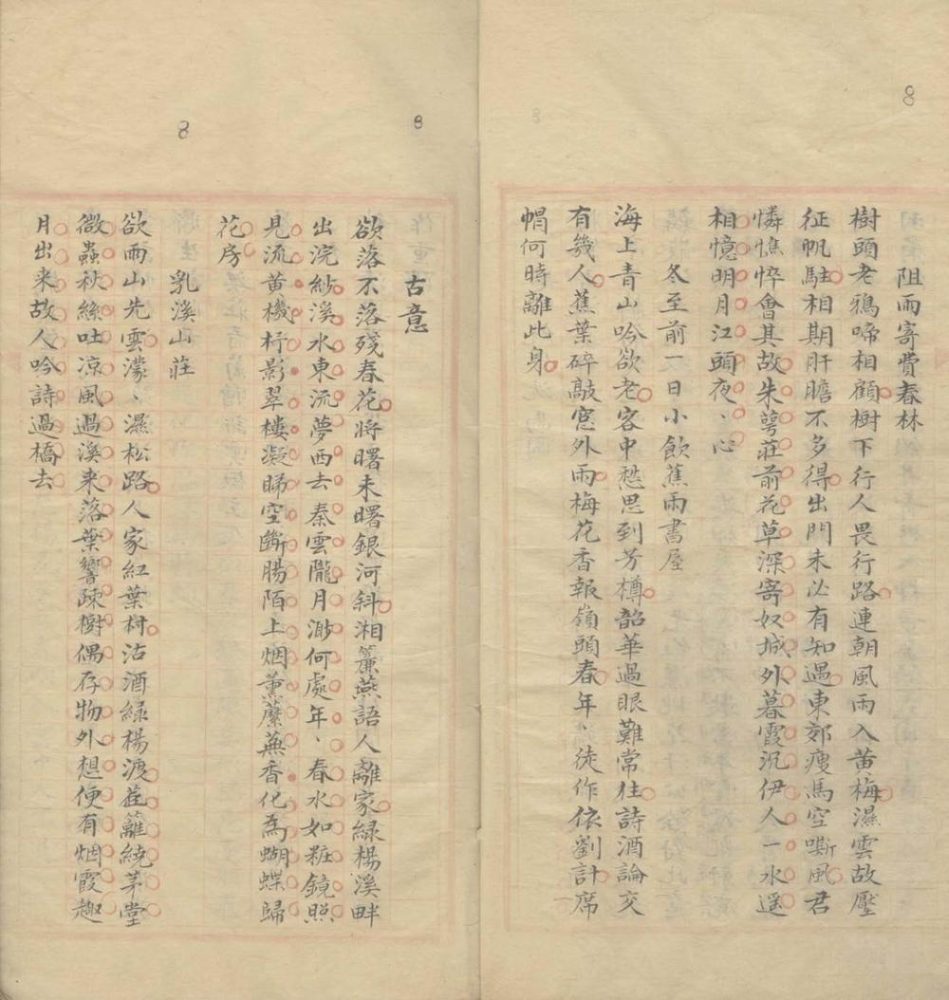 8
阻雨寄費春林
樹頭老鴉啼相顧樹下行人畏行路連朝風雨入黄梅濕雲故壓
征帆駐相期肝膽不多得出門未必有知遇東郊瘦馬空嘶風君
憐憔悴會其故朱萼莊前花草深寄奴城外暮霞沉伊人一水遥
相憶明月江頭夜、心
冬至前一日小飲蕉雨書屋
海上青山吟欲老客中愁思到芳樽韶華過眼難常住詩酒論交
有幾人蕉葉碎敲窓外雨梅花香報嶺頭春年、徒作依劉計席
帽何時離此身
8
8
古意
欲落不落殘春花將曙未曙銀河斜湘簾燕語人離家緑楊溪畔
出浣紗溪水東流夢西去秦雲隴月渺何處年、春水如粧鏡照
見流黄機杼影翠樓凝睇空斷腸陌上烟薰蘼蕪香化為蝴蝶歸
花房
乳溪山莊
欲雨山先雲濛、濕松路人家紅葉村沽酒緑楊渡荘籬繞茅堂
微蟲秋絲吐凉風過溪来落葉響疎樹偶存物外想便有烟霞趣
月出来故人吟詩過橋去